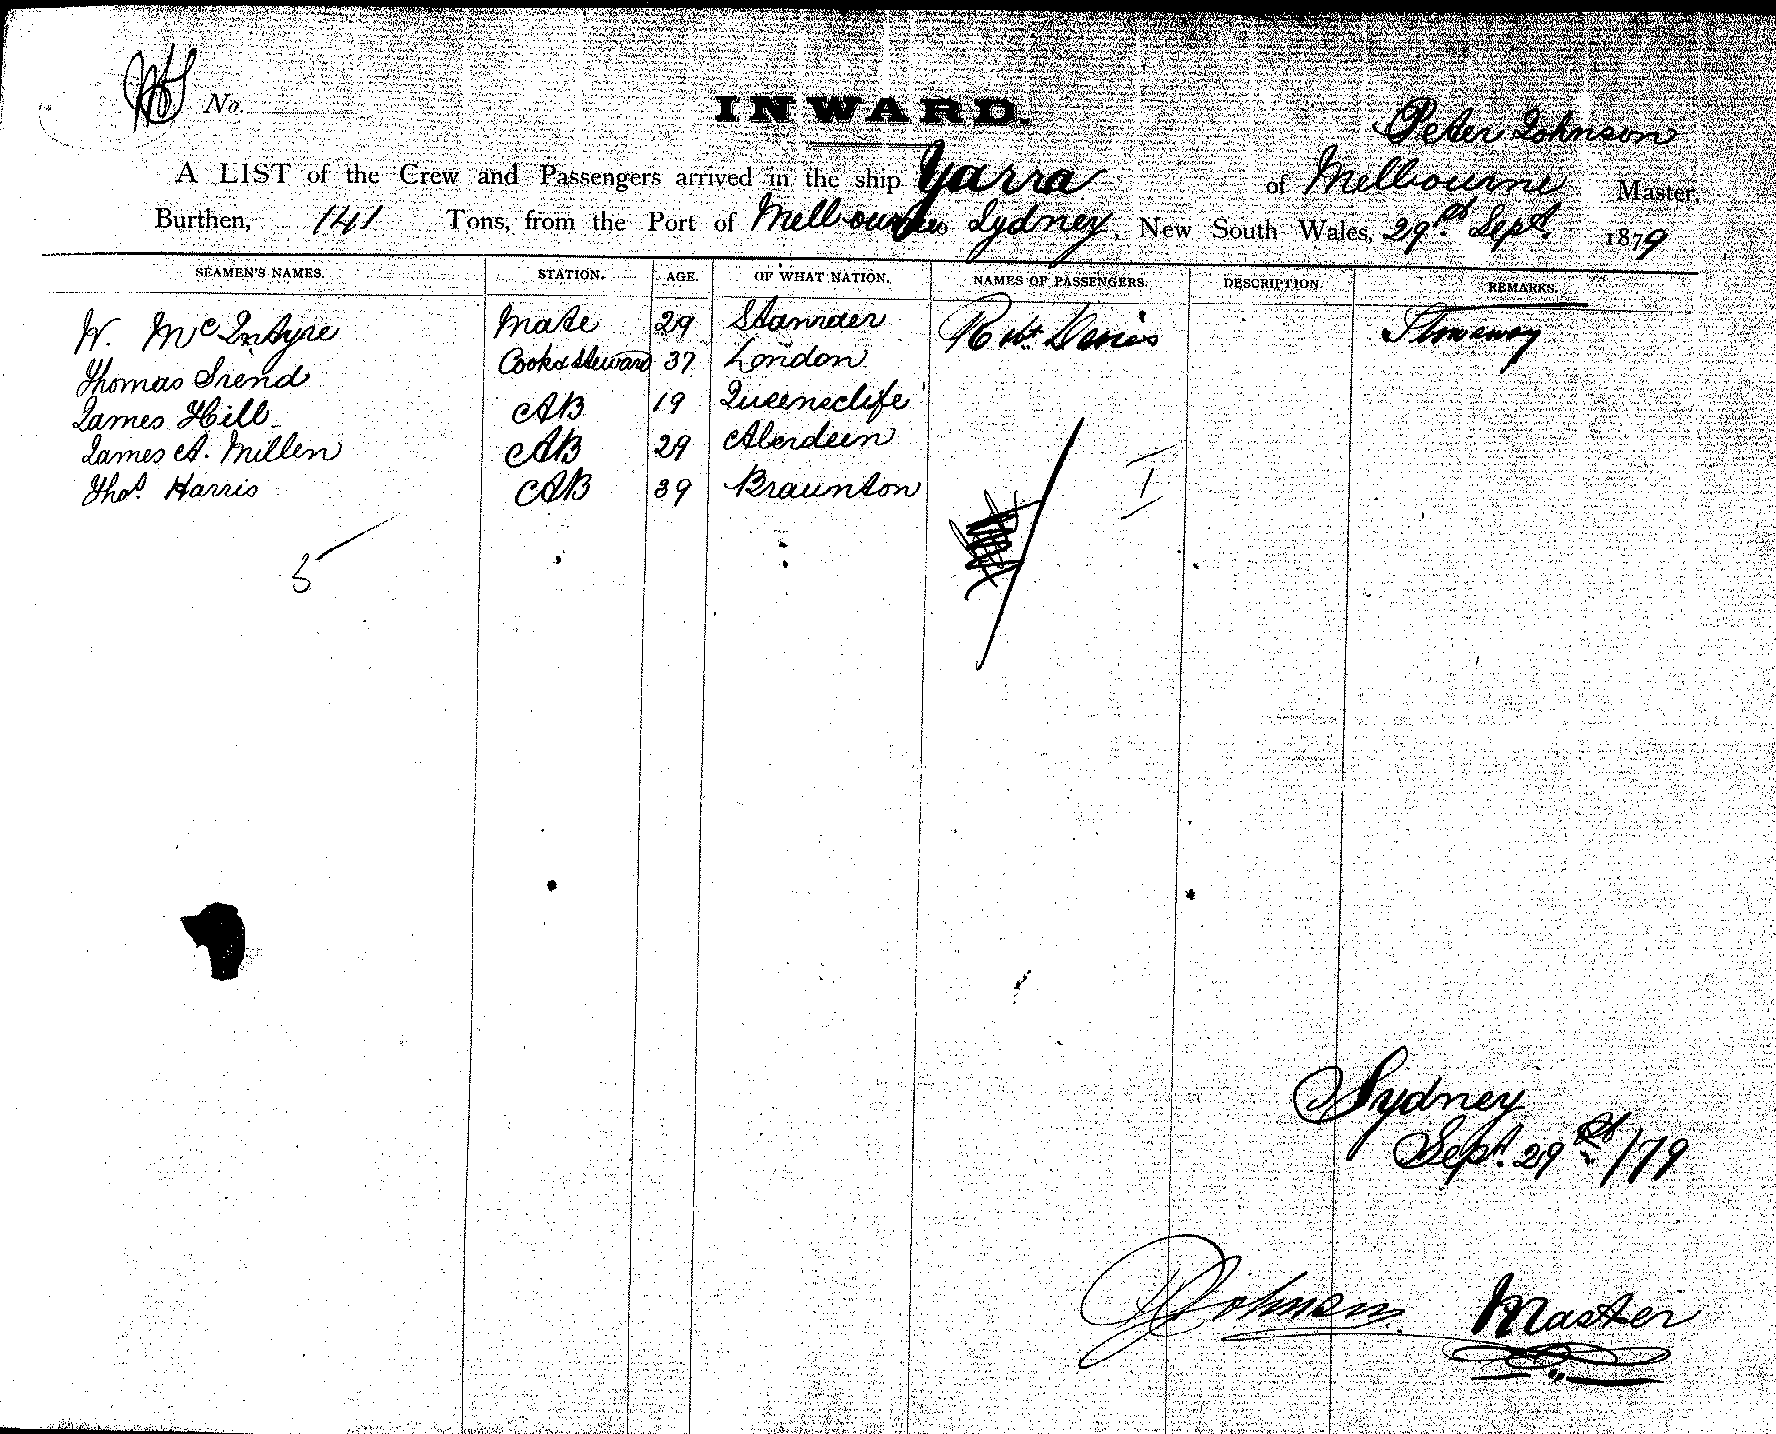 No.
INWARD.
Peter Johnson
A LIST of the Crew and Passengers arrived in the ship Yarra of Melbourne Master,
Burthen, 141 Tons, from the Port of Melbourne to Sydney, New South Wales, 29th Sept. 1879
SEAMEN'S NAMES. STATION. AGE. OF WHAT NATION. NAMES OF PASSENGERS. DESCRIPTION. REMARKS.
W. McIntyre Mate 29 Robt Stowaway
Thomas Cook & Steward 37 London
James Hill AB 19 Queenscliffe
James A. Millen AB 29 Aberdeen
Thos. Harris AB 39 Braunton
1
5
Sydney
Sept. 29th /79
P Johnson Master